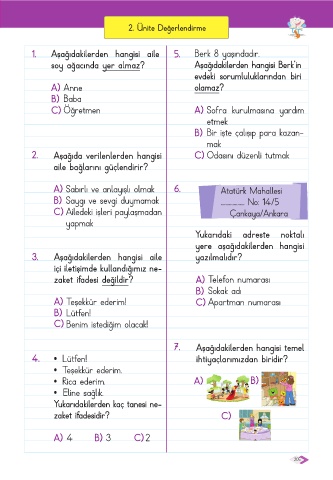 2. Ünite Değerlendirme
1. Aşağıdakilerden hangisi aile
soy ağacında yer almaz?
A) Anne
B) Baba
C) Öğretmen
2. Aşağıda verilenlerden hangisi
aile bağlarını güçlendirir?
A) Sabırlı ve anlayışlı olmak
B) Saygı ve sevgi duymamak
C) Ailedeki işleri paylaşmadan
yapmak
3. Aşağıdakilerden hangisi aile
içi iletişimde kullandığımız ne-
zaket ifadesi değildir?
A) Teşekkür ederim!
B) Lütfen!
C) Benim istediğim olacak!
4. • Lütfen!
• Teşekkür ederim.
• Rica ederim.
• Eline sağlık.
Yukarıdakilerden kaç tanesi ne-
zaket ifadesidir?
A) 4 B) 3 C) 2
5. Berk 8 yaşındadır.
Aşağıdakilerden hangisi Berk'in
evdeki sorumluluklarından biri
olamaz?
A) Sofra kurulmasına yardım
etmek
B) Bir işte çalışıp para kazan-
mak
C) Odasını düzenli tutmak
6. Atatürk Mahallesi
............ No: 14/5
Çankaya/Ankara
Yukarıdaki adreste noktalı
yere aşağıdakilerden hangisi
yazılmalıdır?
A) Telefon numarası
B) Sokak adı
C) Apartman numarası
7. Aşağıdakilerden hangisi temel
ihtiyaçlarımızdan biridir?
A) B)
C)